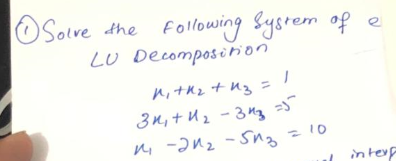 ① Solve the Following System of e
LU Decomposition
x₁ + x₂ + x₃ = 1
3x₁ + x₂ - 3x₃ = 5
x₁ - 2x₂ - 5x₃ = 10
interp